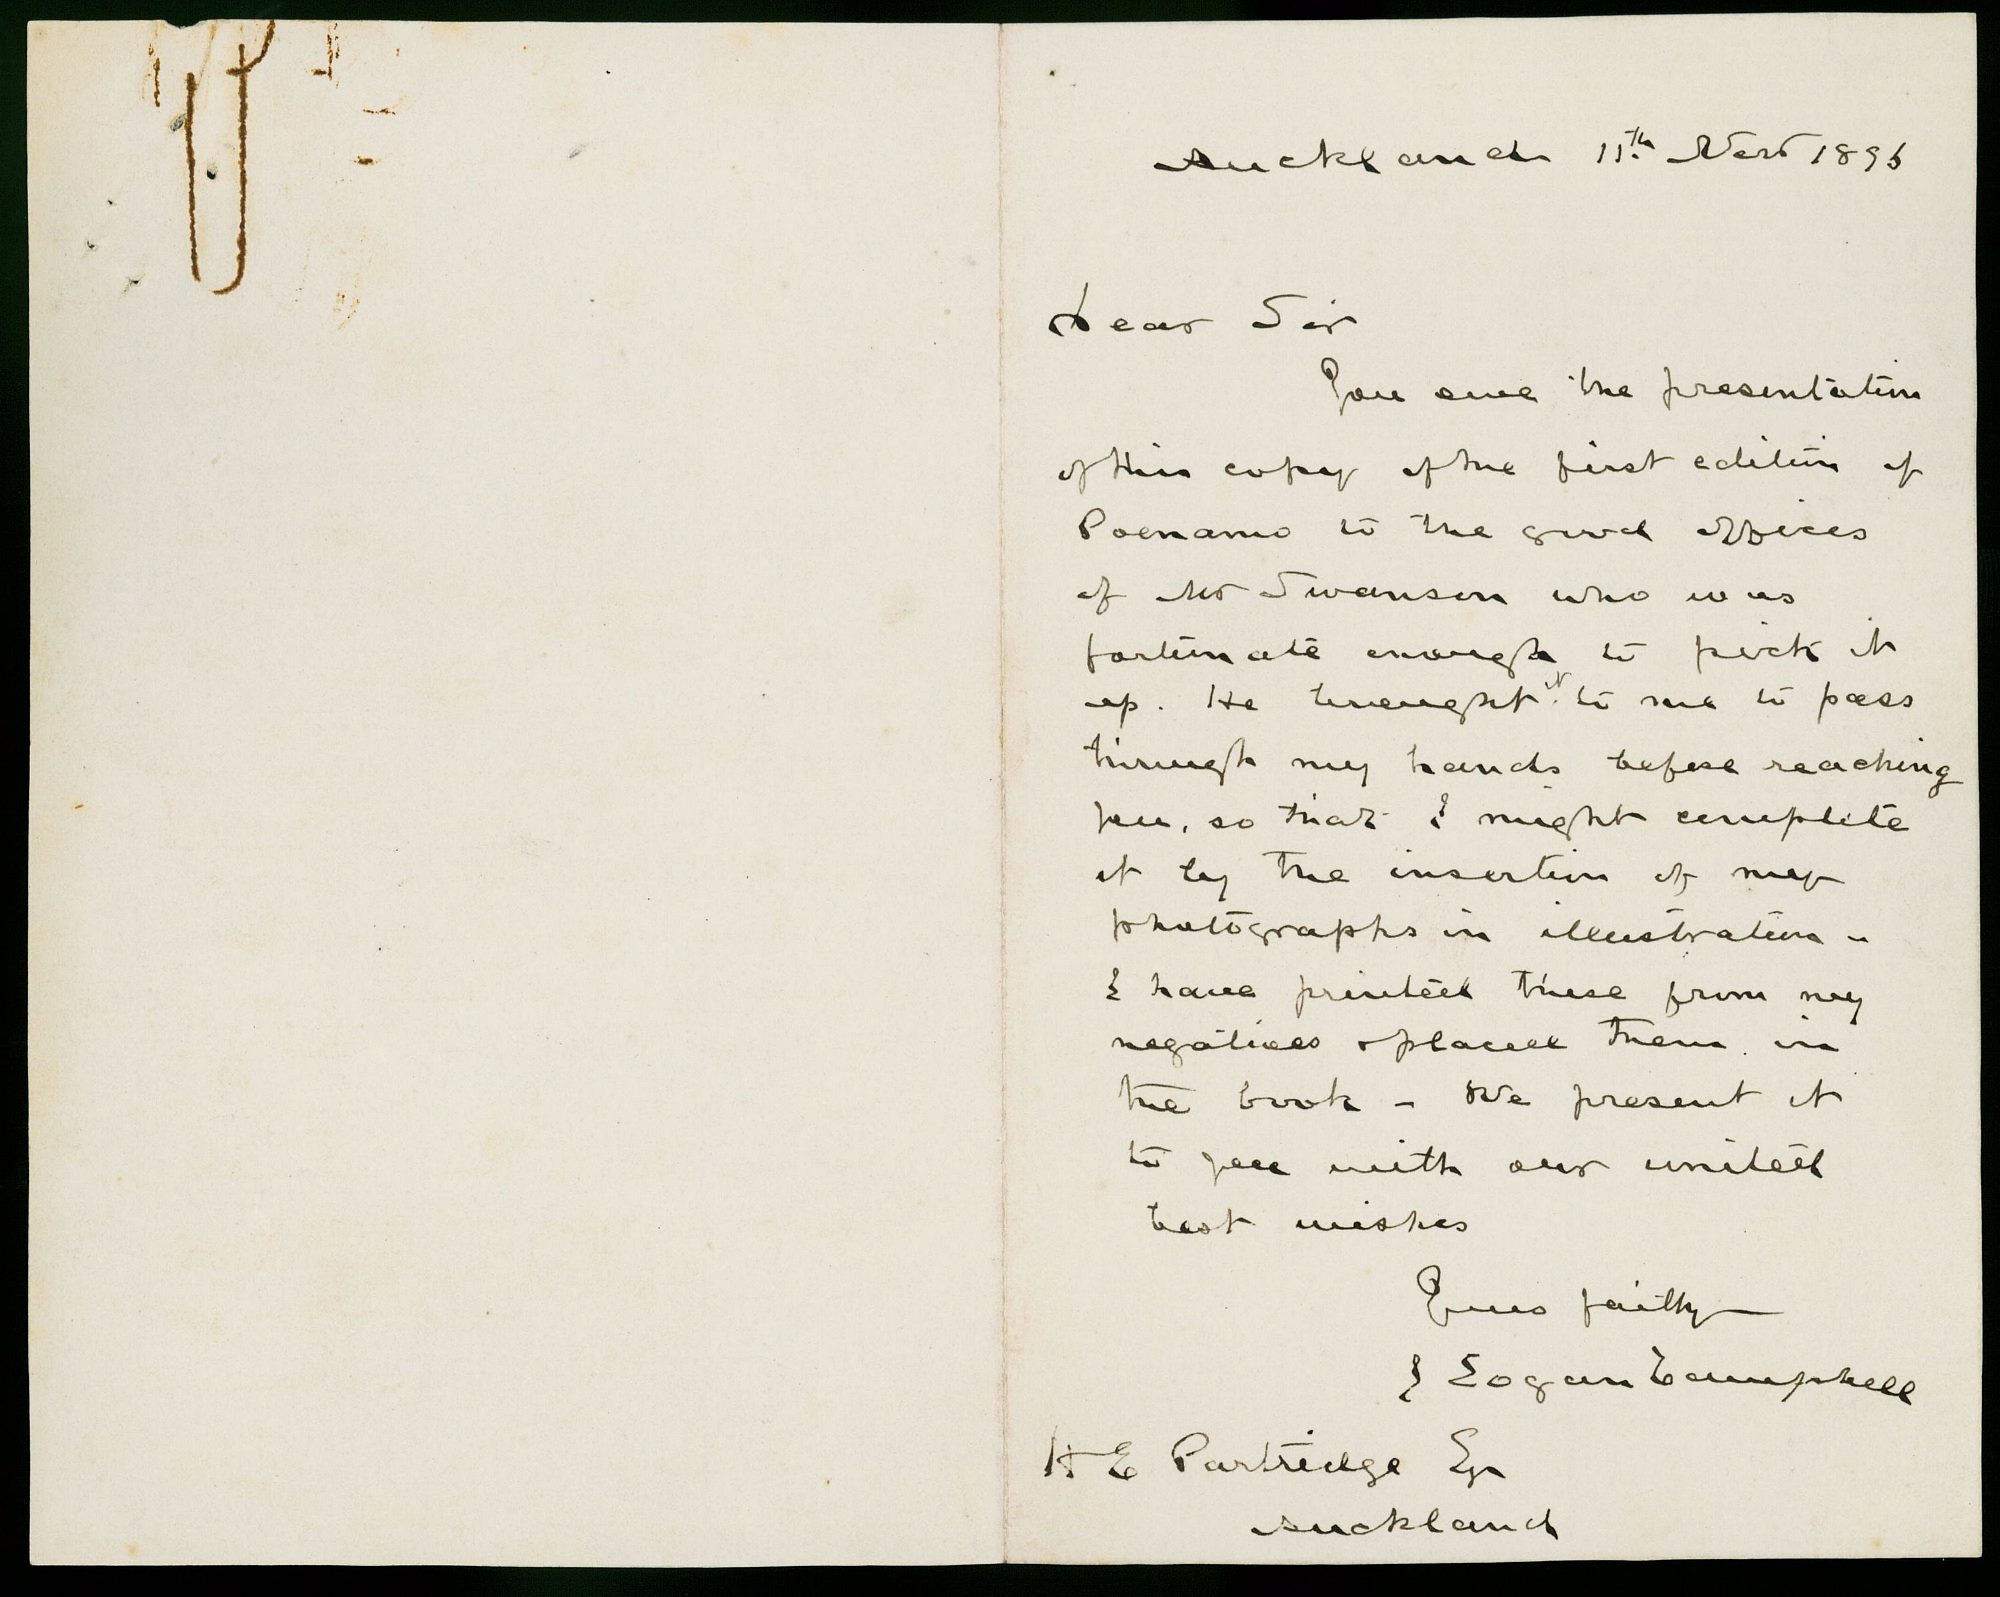 Auckland 11th Novr 1896
Dear Sir
You owe the presentation
of this copy of the first edition of
Poenamo to the good offices
of Mr Swanson who was
fortunate enough to pick it
up. He brought it to me to pass
through my hands before reaching
you, so that I might complete
it by the insertion of my
photographs in illustration -
I have printed these from my
negatives & placed them in
the book - We present it
to you with our united
best wishes
Yours faithy
J Logan Campbell
H E Partridge Esq
Auckland